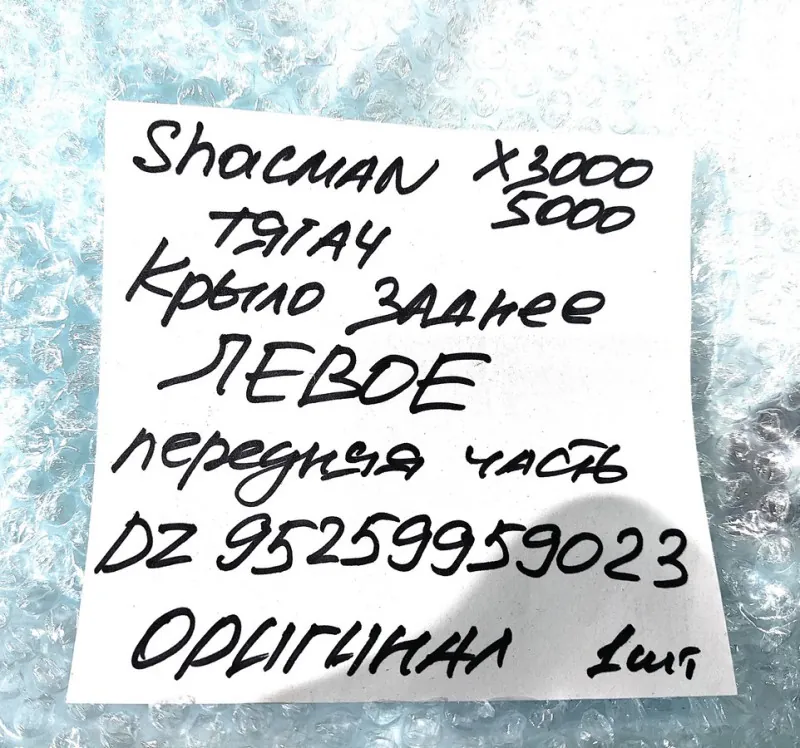 Shacman X3000
5000
тягач
Крыло заднее
ЛЕВОЕ
передняя часть
DZ 95259959023
ОРИГИНАЛ 1шт